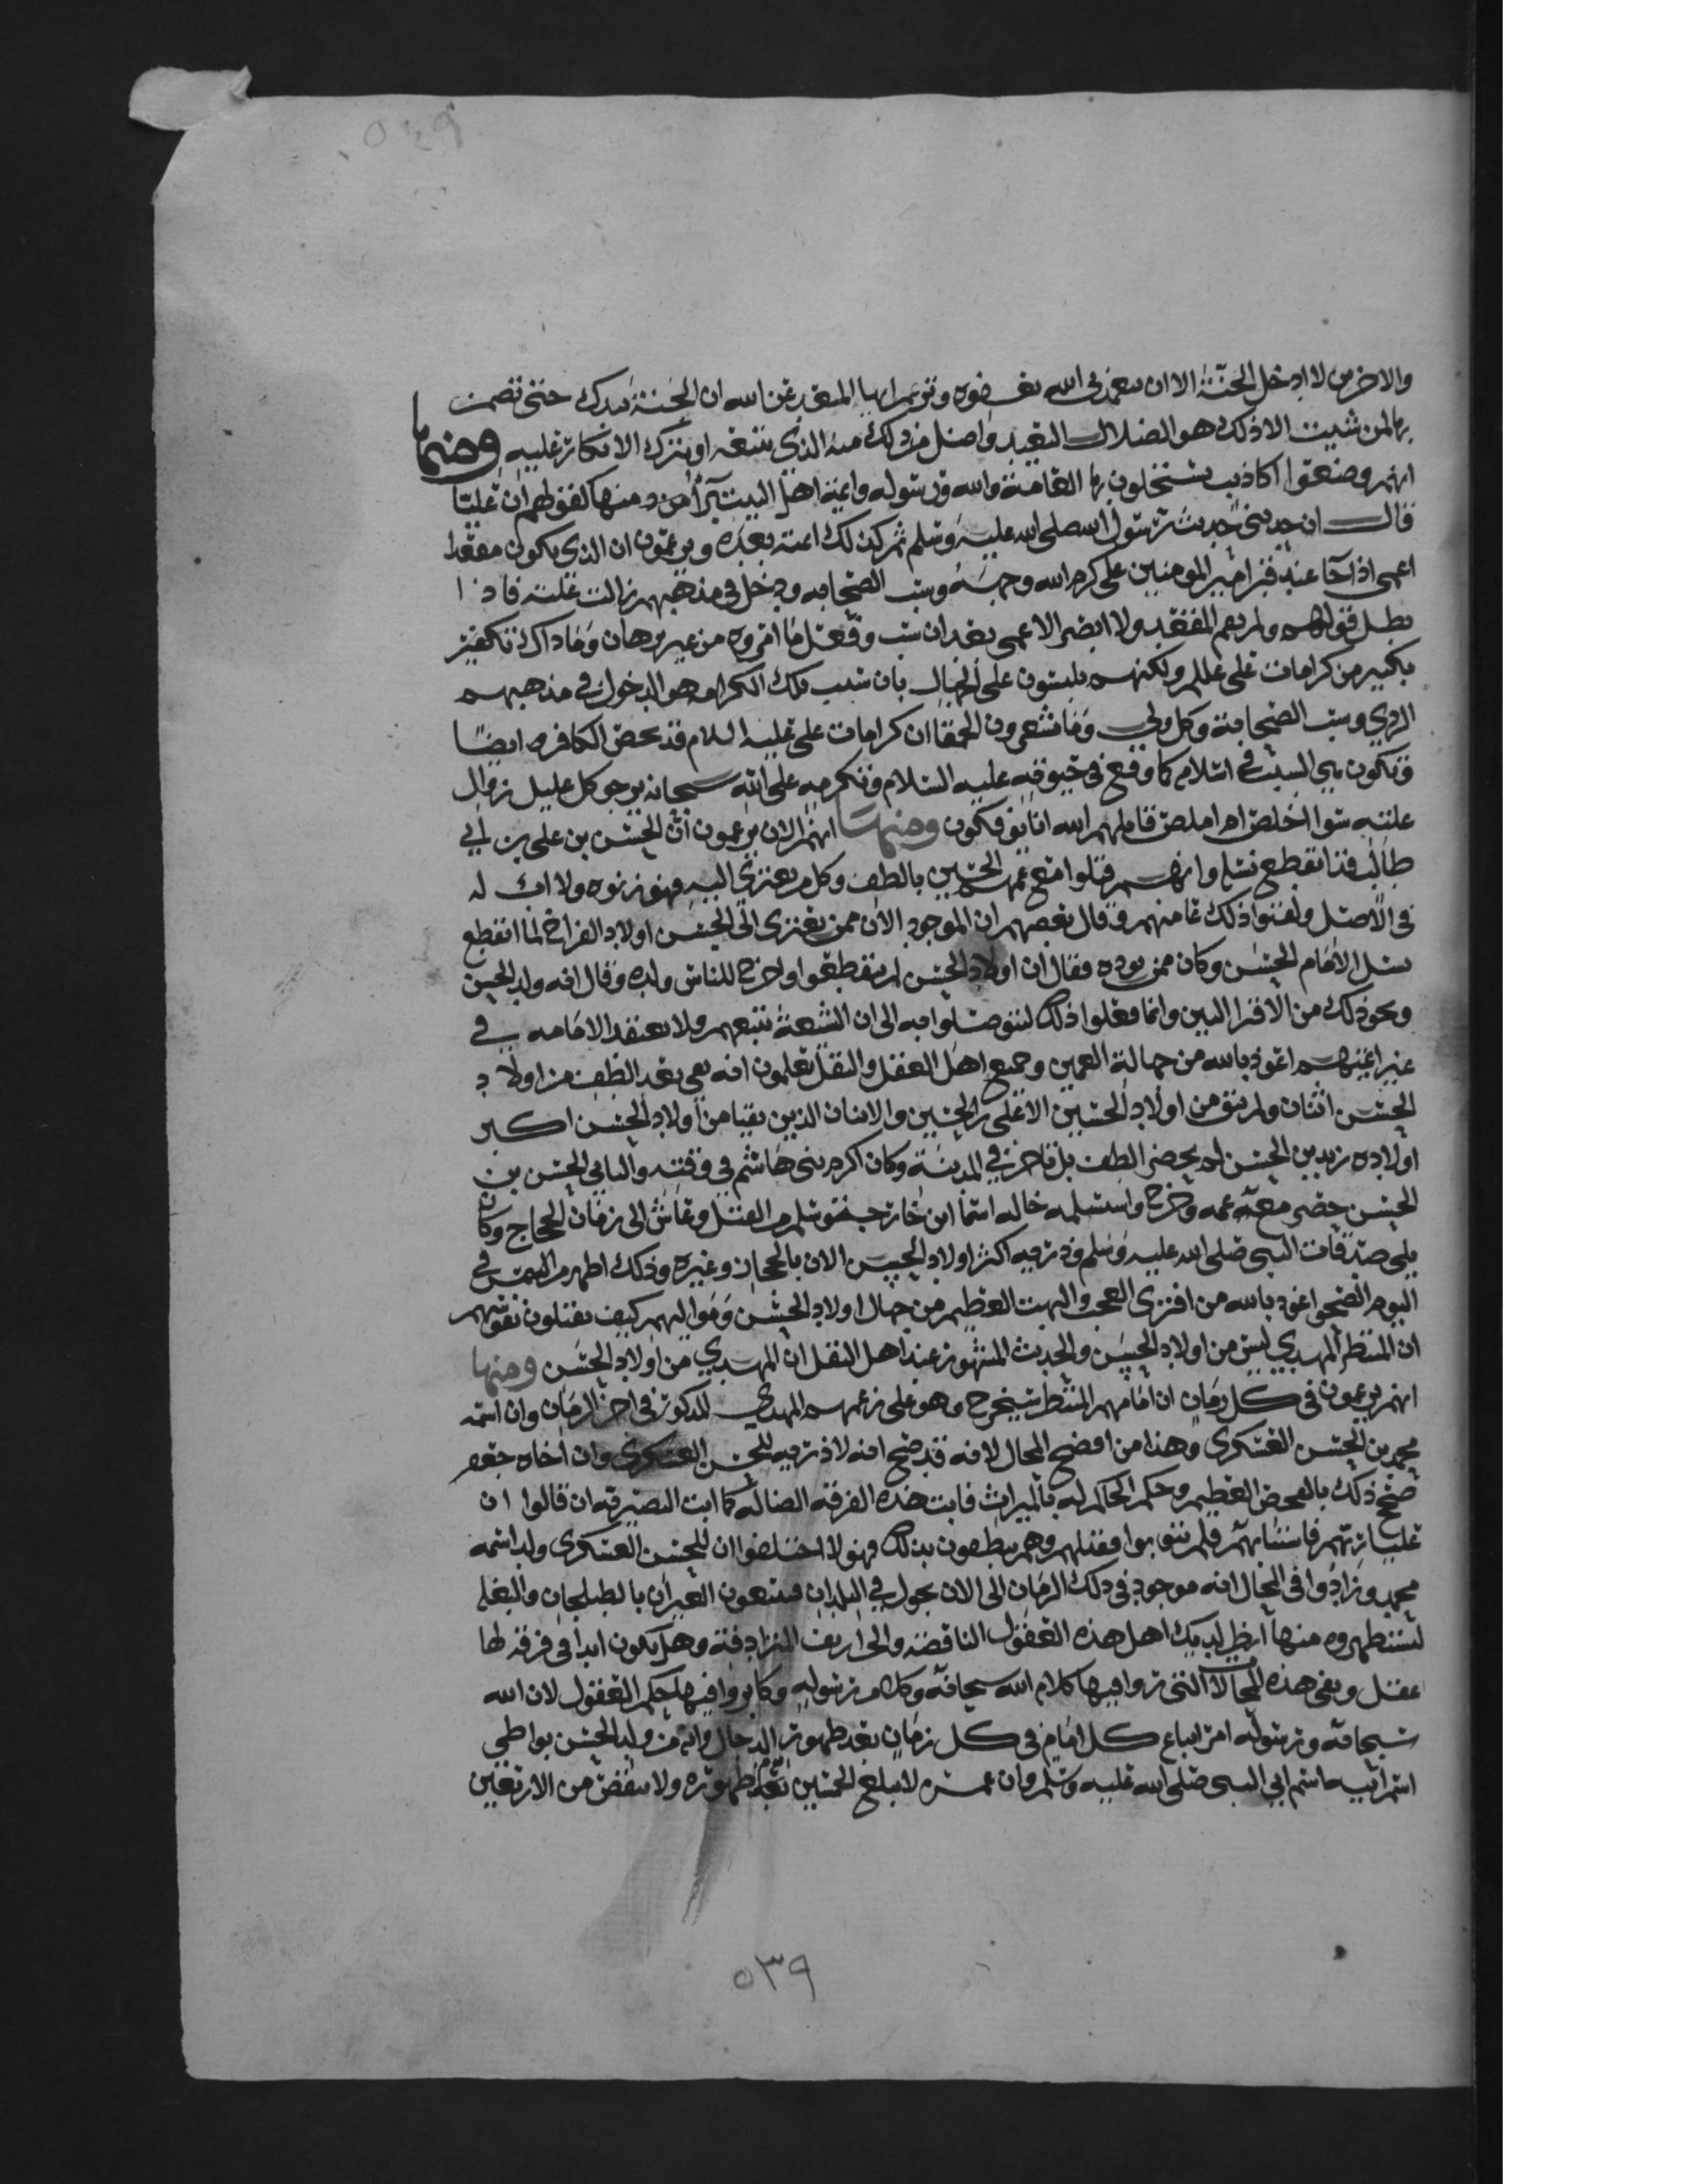 والاخرين لا ادخل الجنة الا ان يتغمدني الله بغفرانه وتزعم ايها المفتري عن الله ان الجنة بيدك حتى تضمن
بها لمن شيت الا ذلك هو الضلال البعيد واضل من ذلك منه الذي يتبعه او يترك الانكار عليه ومنها
انهم وضعوا اكاذيب يستخلون بها العامة والله ورسوله وائمة اهل البيت برآء من ومنها كقولهم ان عليا
قال ان حديثي حديث رسول الله صلى الله عليه وسلم ثم كذلك ائمته بعده ويزعمون ان الذي يكون مقعدا
اعمى اذا جا عند قبر امير المومنين علي كرم الله وجهه وسب الصحابه ودخل في مذهبهم زالت علته فاذا
بطل قولهم ولم يقم المقعد ولا ابصر الاعمى بعد ان سب وفعل ما امروه من غير برهان وما ذاك تكفير
بكبير من كرامات علي ولكنهم يلبسون على الجهال بان سبب تلك الكرامه هو الدخول في مذهبهم
الردي وسب الصحابة وكل ولي وما يشعرون الحمقا ان كرامات علي عليه السلام قد تحصل للكافر ايضا
وتكون هي السبب في اسلامه كما وقع في حيوته عليه السلام وتكرمه على الله سبحانه يرجو كل عليل زوال
علته سوا اخلص ام لم يخلص قاتلهم الله انا يوفكون ومنها انهم الان يزعمون ان الحسن بن علي بن ابي
طالب قد انقطع نسله وانهم قتلوا مع عمهم الحسين بالطف وكل من يعتزي اليه فهو زوره ولا اب له
في الاصل ولقنوا ذلك عامتهم وقال بعضهم ان الموجود الان ممن يعتزي الى الحسن اولاد الفراخ لما انقطع
نسل الامام الحسن وكان ممن يوده فقال ان اولاد الحسن لم ينقطعوا واخرج للناس ولده وقال انه ولد الحسن
ونحو ذلك من الافترا البين وانما فعلوا ذلك ليتوصلوا به الى ان الشيعة تتبعهم ولا يعتقد الامامه في
غير ائمتهم اعوذ بالله من جهالة العمين وجميع اهل العقل والنقل يعلمون انه بقي بعد الطف من اولاد
الحسن اثنان ولم يبق من اولاد الحسين الا علي بن الحسين والاثنان الذين بقيا من اولاد الحسن اكبر
اولاده زيد بن الحسن لم يحضر الطف بل تاخر في المدينة وكان اكرم بني هاشم في وقته والثاني الحسن بن
الحسن حضر مع عمه وجرح واستسلمه خاله اسما ابن خارجة فسلم من القتل وعاش الى زمان الحجاج وكان
يلي صدقات النبي صلى الله عليه وسلم وذريته اكثر اولاد الحسن الان بالحجاز وغيره وذلك اظهر من الشمس في
اليوم الضحي اعوذ بالله من افترى العجب والبهت العظيم من جهال اولاد الحسن ومواليهم كيف يقبلون بقولهم
ان المنتظر المهدي ليس من اولاد الحسن والحديث المشهور عند اهل النقل ان المهدي من اولاد الحسن ومنها
انهم يزعمون في كل زمان ان امامهم المنتظر سيخرج وهو على زعمهم المهدي المذكور في اخر الزمان وان اسمه
محمد بن الحسن العسكري وهذا من اوضح المحال لانه قد صح انه لا ذريه للحسن العسكري وان اخاه جعفر
صحح ذلك بالفحص العظيم وحكم الحاكم له بالميراث فابت هذه الفرقه الضاله كما ابت النصيريه ان قالوا ان
عليا ربهم فاستتابهم فلم يتوبوا فقتلهم وهم ينطقون بذلك فهولا اختلقوا ان للحسن العسكري ولد اسمه
محمد وزادوا في المحال انه موجود في ذلك الزمان الى الان يجول في البلدان فيتبعون العيران بالطبلجان والبغله
ليستظهروه منها انظر لبديك اهل هذه العقول الناقصه والخراريف الزنادقة وهل يكون ابدا في فرقه لها
عقل وبقي هذه المحالات التي ردوا فيها كلام الله سبحانه وكلام رسوله وكابروا فيها حكم العقول لان الله
سبحانه ورسوله امر اتباع كل امام في كل زمان بعد ظهور الدجال وانه من ولد الحسن يواطي
اسم ابيه اسم ابي النبي صلى الله عليه وسلم وان عمره لا يبلغ الخمسين بعد ظهوره ولا ينقص من الاربعين
٥٣٩